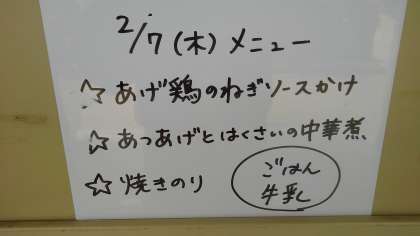 2/7(木)メニュー
☆あげ鶏のねぎソースかけ
☆あつあげとはくさいの中華煮
☆焼きのり
ごはん
牛乳